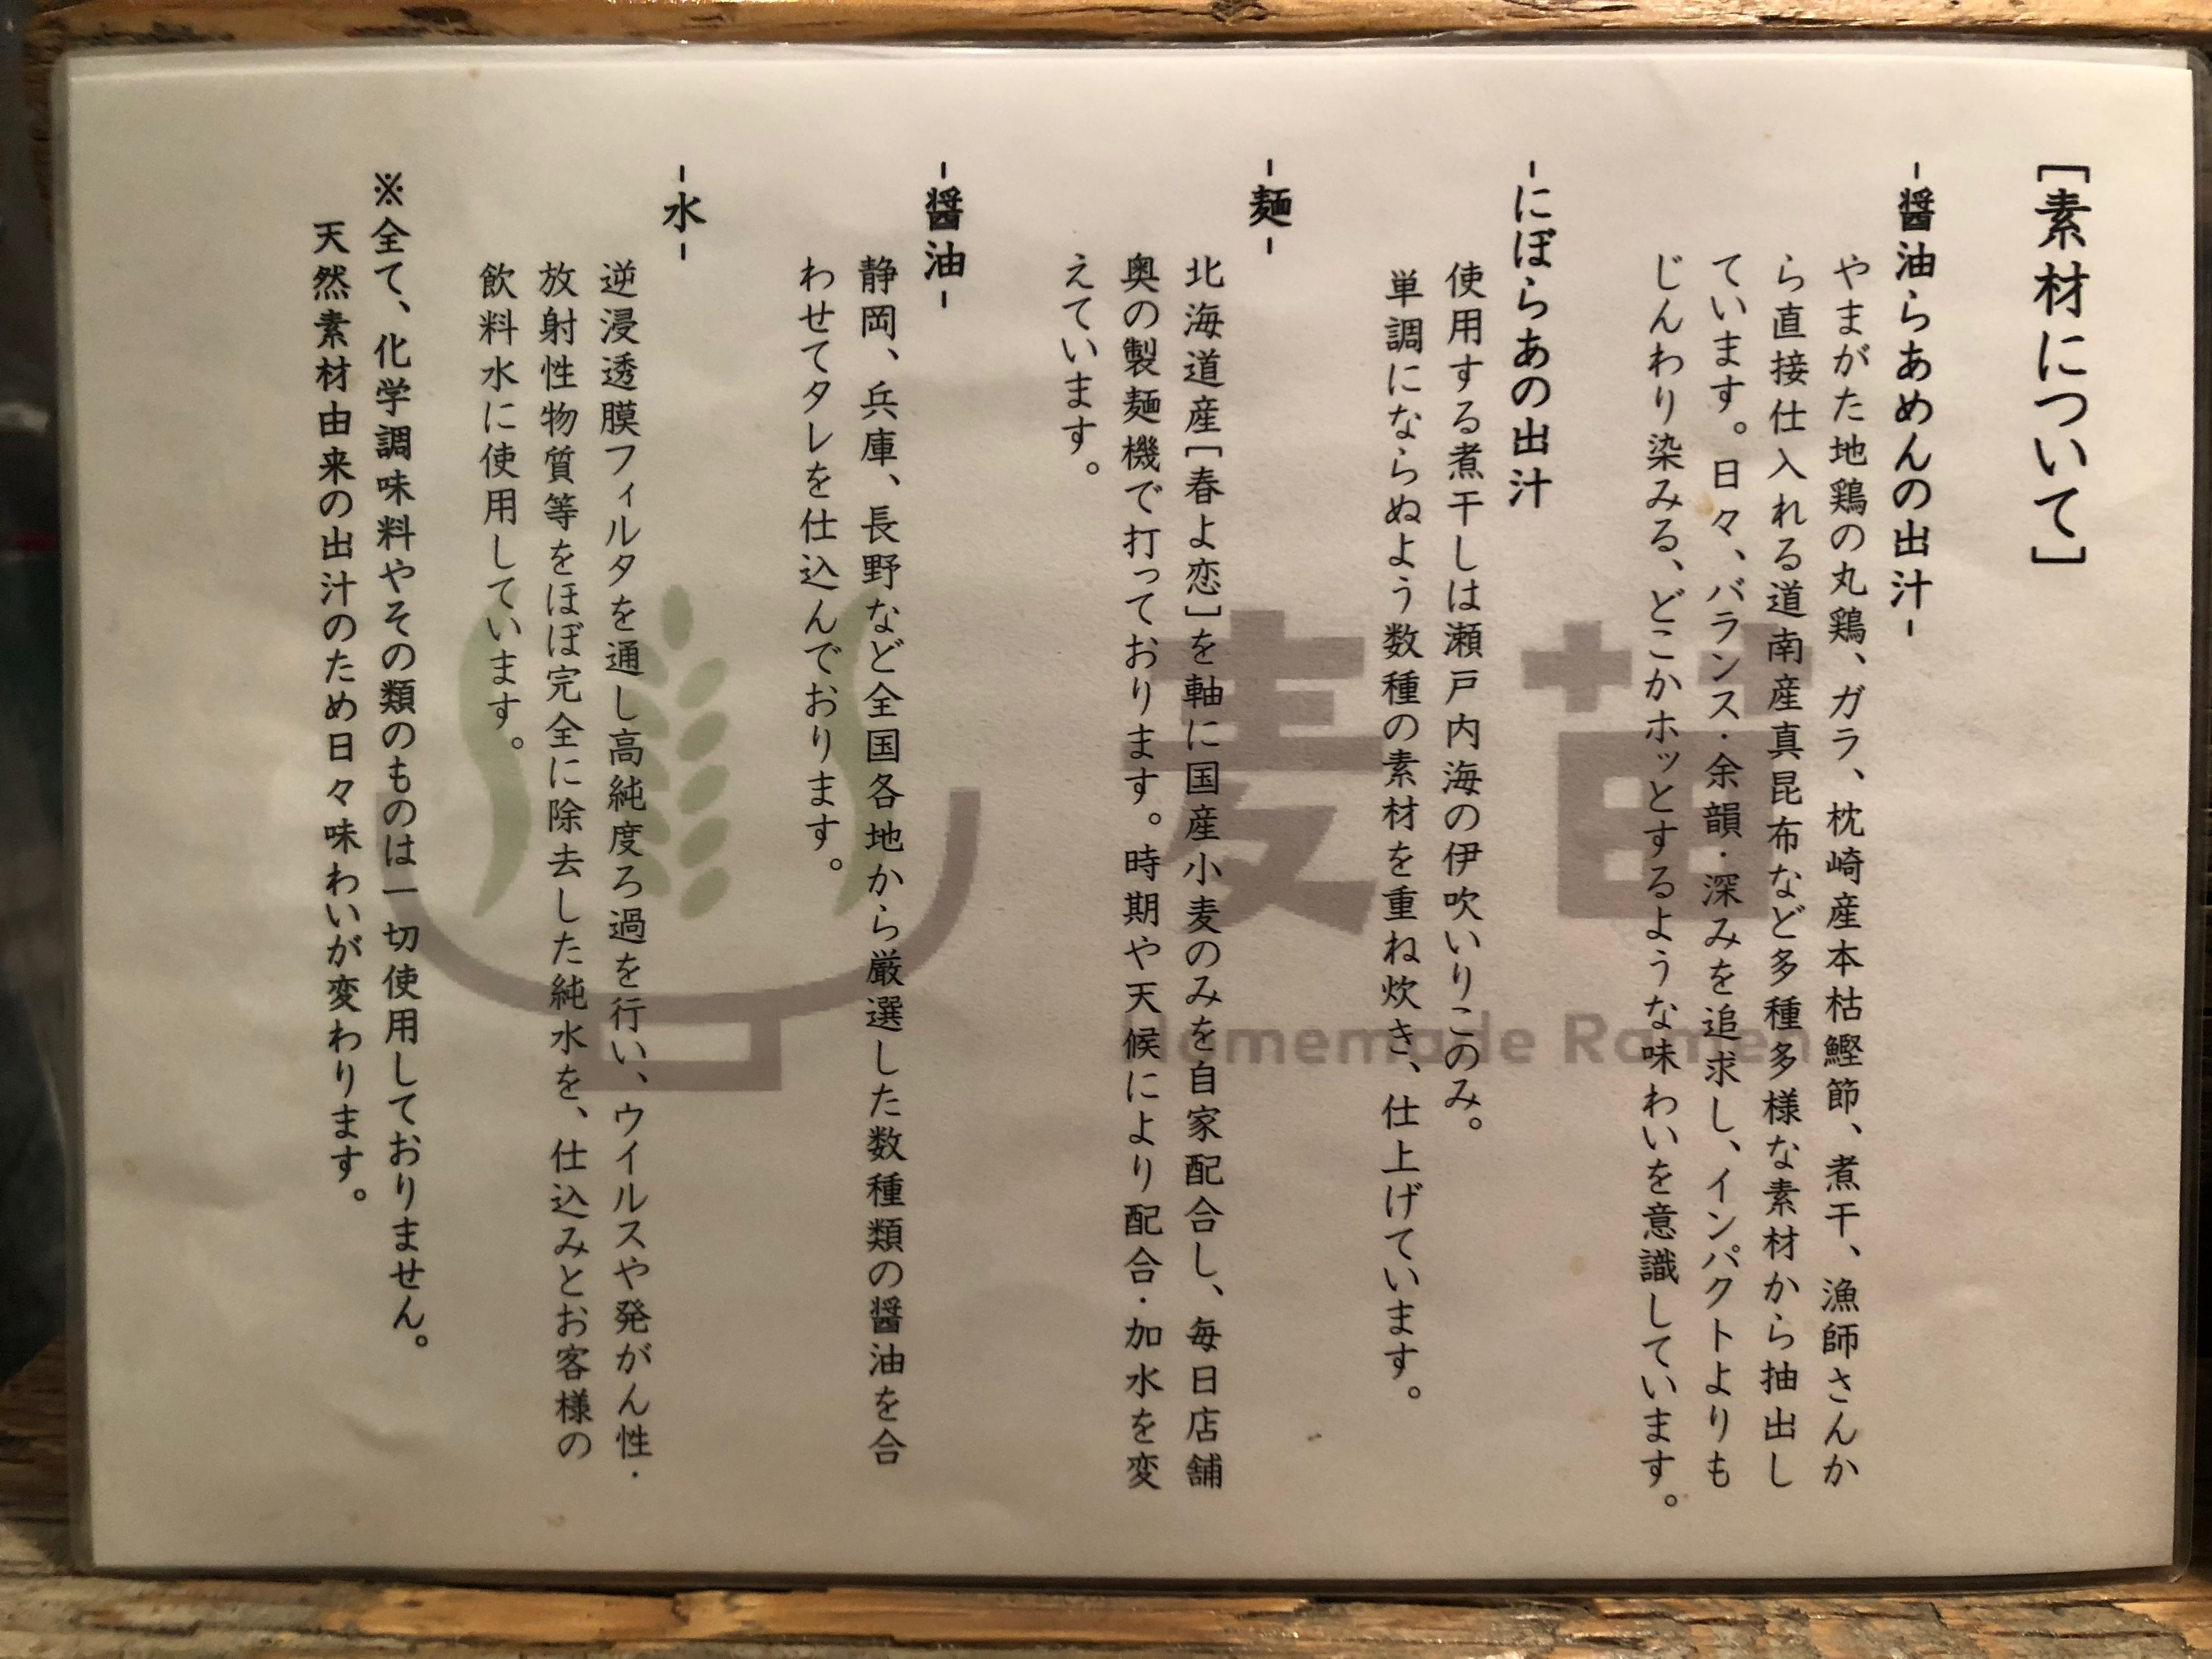 [素材について]
-醤油らあめんの出汁-
やまがた地鶏の丸鶏、ガラ、枕崎産本枯鰹節、煮干、漁師さんか
ら直接仕入れる道南産真昆布など多種多様な素材から抽出し
ています。日々、バランス・余韻・深みを追求し、インパクトよりも
じんわり染みる、どこかホッとするような味わいを意識しています。
-にぼらあの出汁
使用する煮干しは瀬戸内海の伊吹いりこのみ。
単調にならぬよう数種の素材を重ね炊き、仕上げています。
-麺-
北海道産[春よ恋]を軸に国産小麦のみを自家配合し、毎日店舗
奥の製麺機で打っております。時期や天候により配合・加水を変
えています。
-醤油-
静岡、兵庫、長野など全国各地から厳選した数種類の醤油を合
わせてタレを仕込んでおります。
-水-
逆浸透膜フィルタを通し高純度ろ過を行い、ウイルスや発がん性・
放射性物質等をほぼ完全に除去した純水を、仕込みとお客様の
飲料水に使用しています。
※全て、化学調味料やその類のものは一切使用しておりません。
天然素材由来の出汁のため日々味わいが変わります。
麦苗
Homemade Ramen